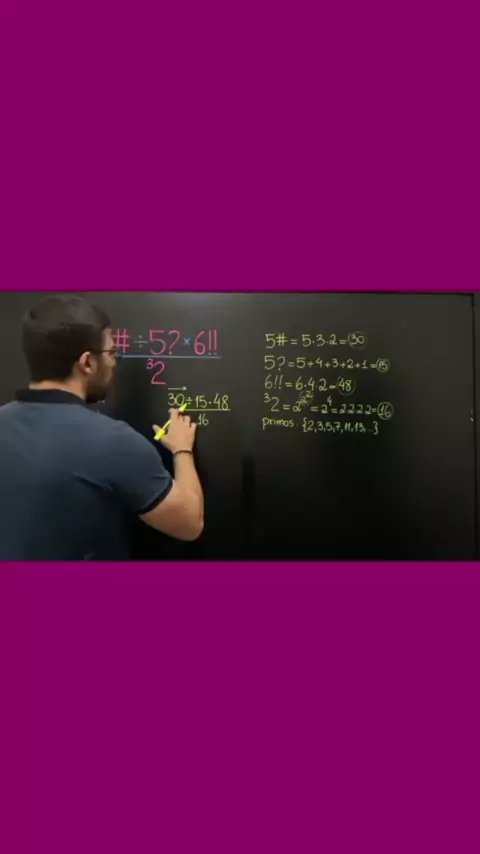 # ÷ 5? × 6!!
³2
30 ÷ 15 · 48
16
5# = 5·3·2 = 30
5? = 5+4+3+2+1 = 15
6!! = 6·4·2 = 48
³2 = 2^2^2 = 2^4 = 2·2·2·2 = 16
primos: {2,3,5,7,11,13,...}